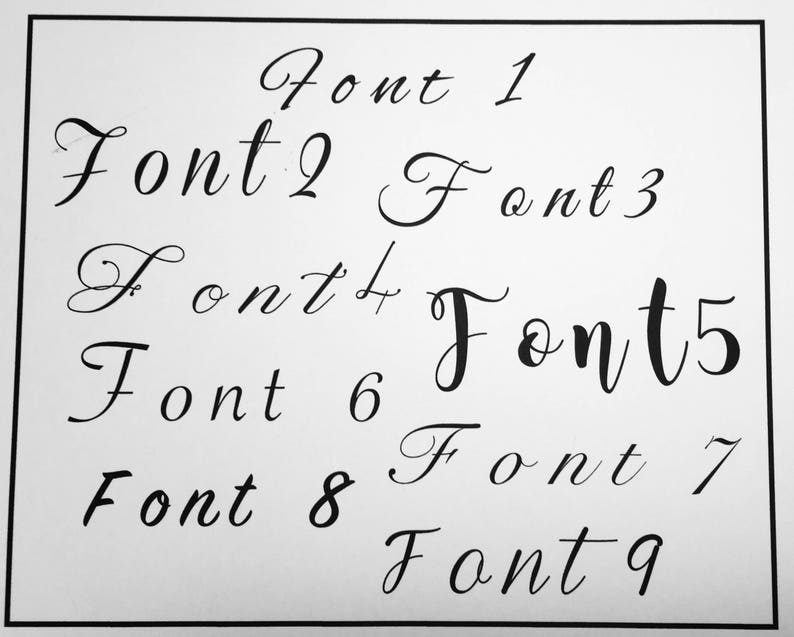 Font 1
Font 2
Font 3
Font 4
Font 5
Font 6
Font 7
Font 8
Font 9